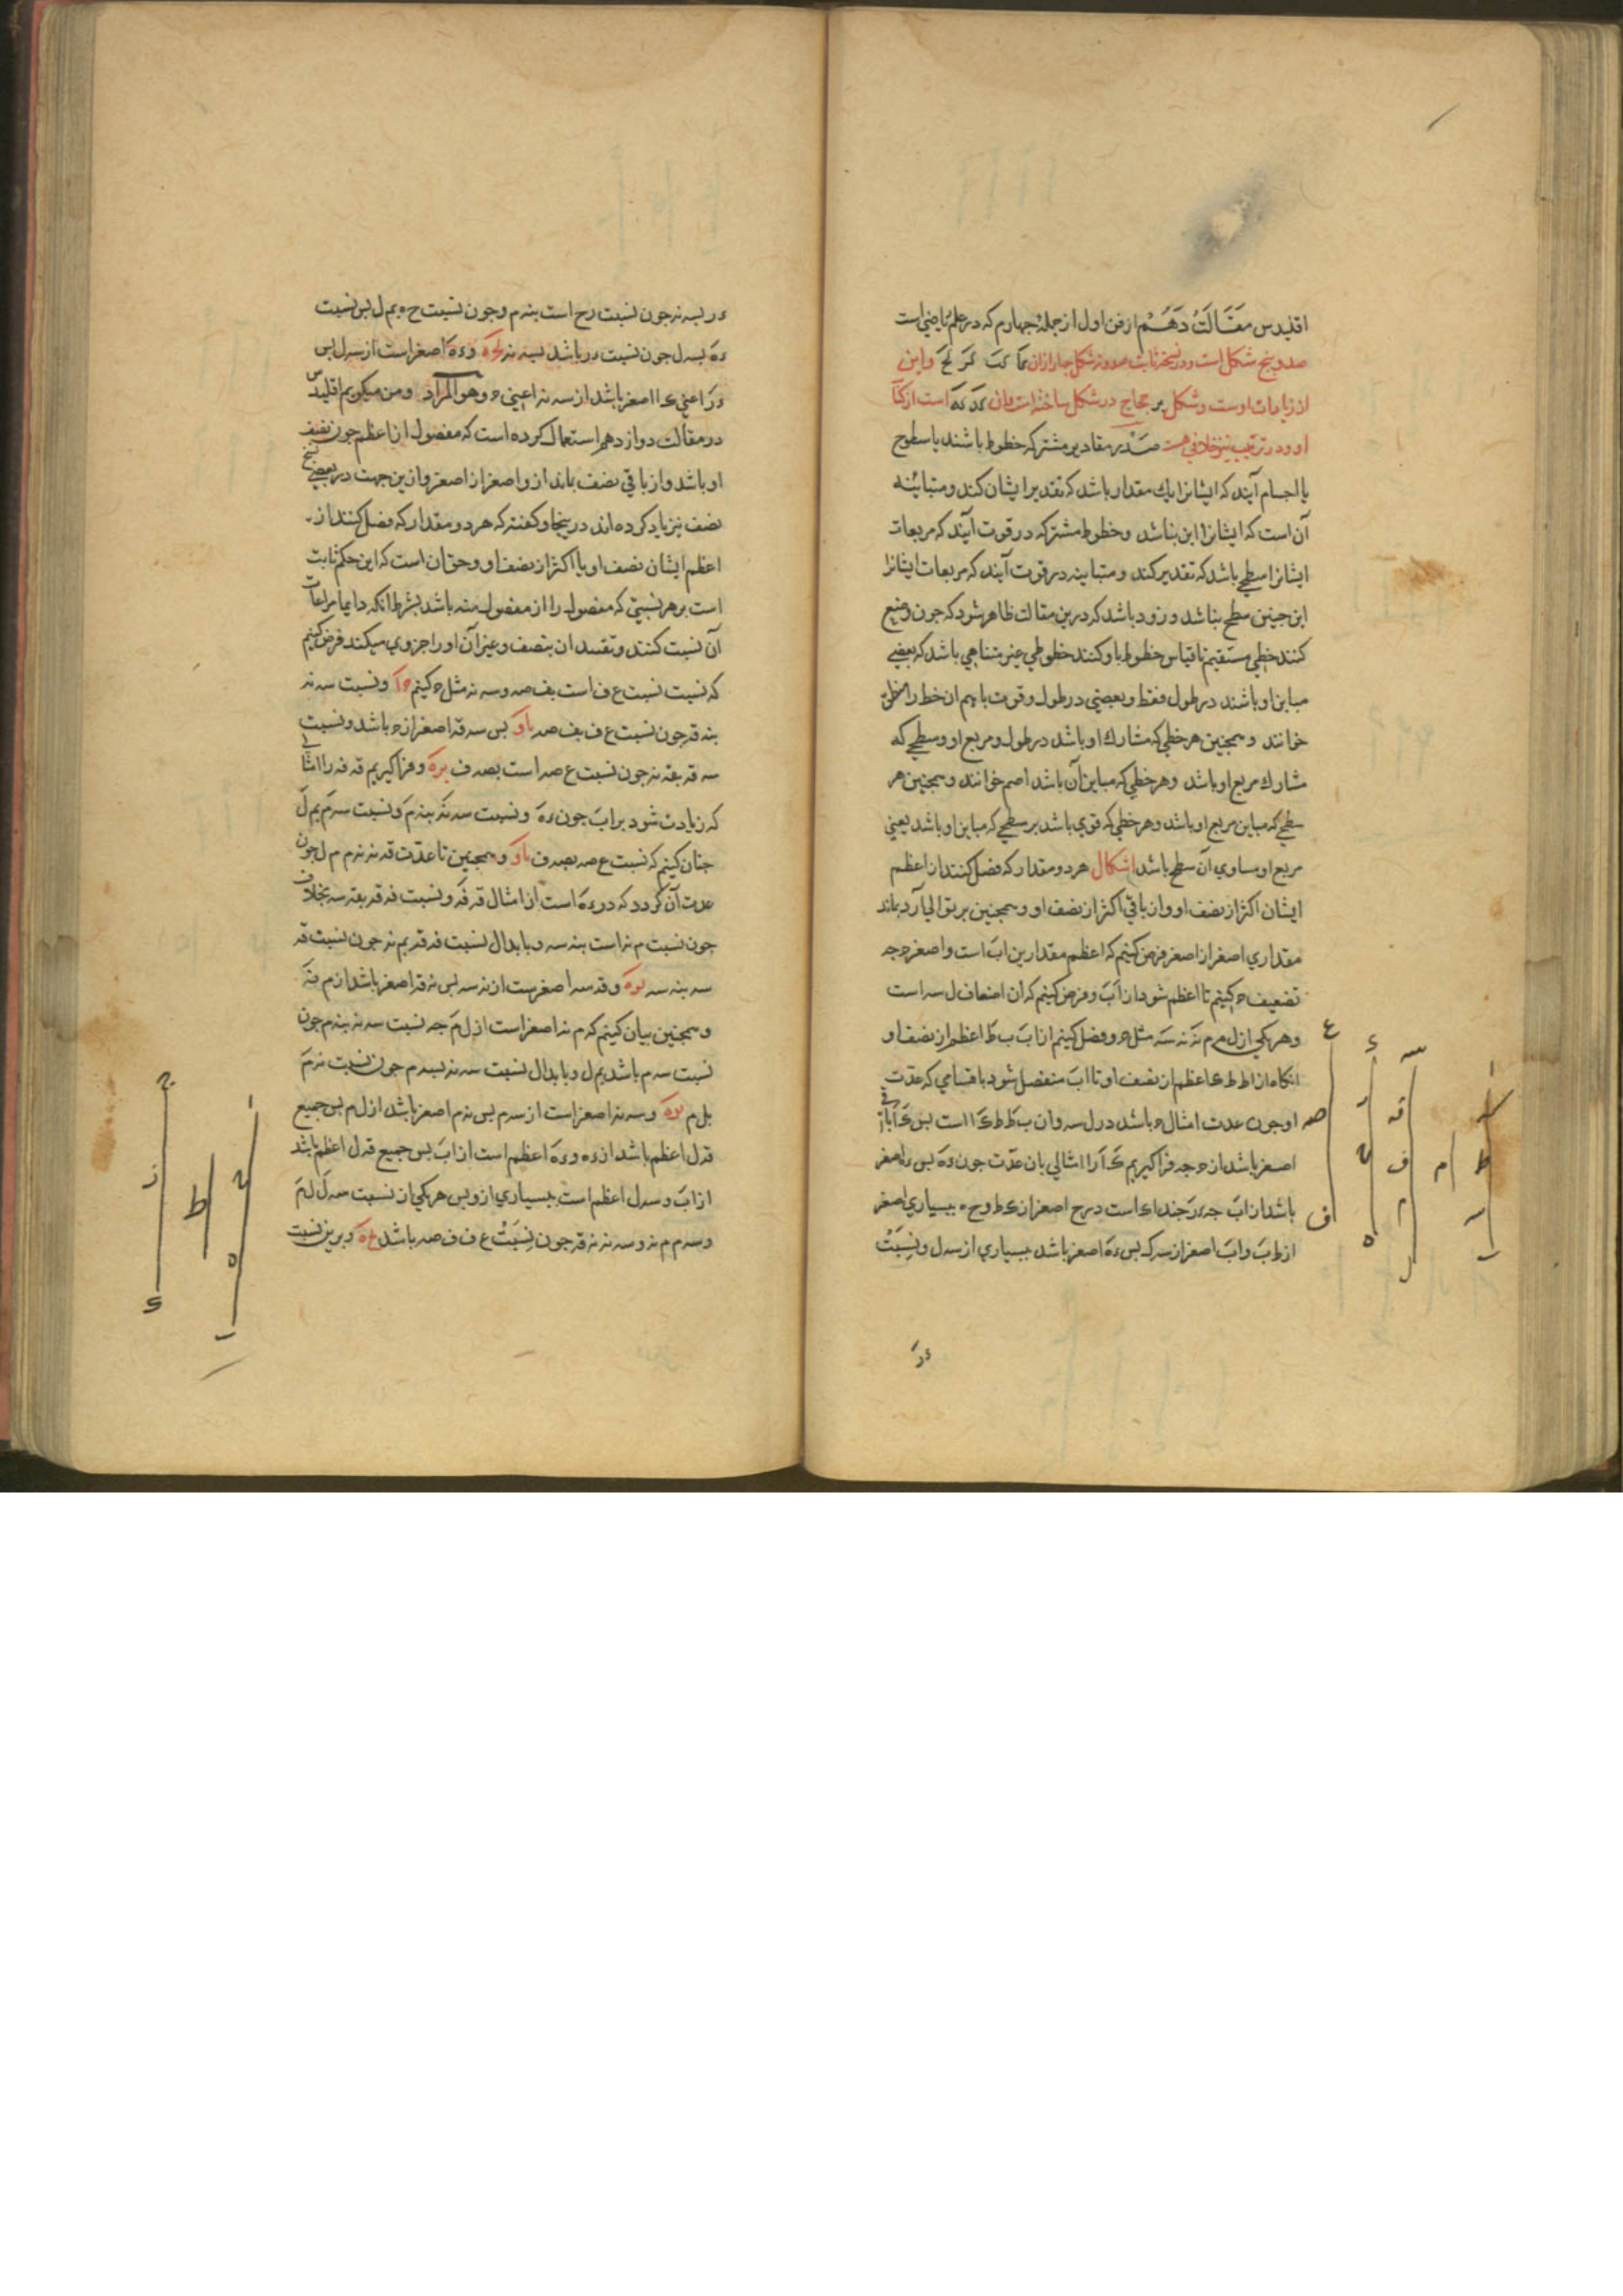 اقلیدس مَقَالَتُ دَهُمْ از فن اول از جملهٔ جهارم که در علم ریاضی است
صد و پنج شکل است و در نسخهٔ ثابت صد و نه شکل چهار ازان
از زیادات اوست و شکل بر حجاج در شکل ساخته است
او و در ترتیب نیز خلافی هست صَدْر مقادیر مشترکه خطوط باشند یا سطوح
یا اجسام آنند که ایشانرا یک مقدار باشد که تقدیر ایشان کند و متباینه
آن است که ایشانرا این نباشد و خطوط مشترکه در قوت آنند که مربعات
ایشانرا سطحی باشد که تقدیر کند و متباینه در قوت آنند که مربعات ایشانرا
این جنین سطح نباشد و زود باشد که درین مقالت ظاهر شود که جون وضع
کنند خطی مستقیم تا قیاس خطوط باو کنند خطوطی غیر متناهی باشد که بعضی
مباین او باشند در طول فقط و بعضی در طول و قوت باهم ان خط را منطق
خوانند و همجنین هر خطی که مشارک او باشد در طول و مربع او و سطحی که
مشارک مربع او باشد و هر خطی که مباین آن باشد اصم خوانند و همجنین هر
سطحی که مباین مربع او باشد و هر خطی که قوی باشد بر سطحی که مباین او باشد یعنی
مربع او مساوی آن سطح باشد اشکال هر دو مقدار که فضل کنند از اعظم
ایشان اکثر از نصف او و از باقی اکثر از نصف او و همجنین بر توالی آرد بماند
مقداری اصغر از اصغر فرض کنیم که اعظم مقدارین اب است و اصغر ح جه
تضعیف ح کنیم تا اعظم شود از اب و فرض کنیم که ان اضعاف ل سه است
و هر یکی از ل م م نه نه سه مثل ح و فضل کنیم از اب ب ط اعظم از نصف او
انکاه از اط ط ک اعظم از نصف او تا اب منفصل شود باقسامی که عدت
او جون عدت امثال ح باشد در ل سه و ان ب ط ط ک ک ا است بس
اصغر باشد از ح جه فرا کیریم ک ا را امثالی بان عدت جون ء ه بس
باشد از اب جه ء ر جند ا ک است و ر ح اصغر از ک ط و ح ه ببسیاری اصغر
از ط ب و اب اصغر از سه ل بس ء ه اصغر باشد ببسیاری از سه ل و نِسْبَتْ
ء ر
ء ر بسه نه جون نسبت ر ح است بنه م و جون نسبت ح ه بم ل بس نسبت
ء ه بسه ل جون نسبت ء ر باشد بسه نه و ء ه اصغر است از سه ل بس
ء ر اعنی ک ا اصغر باشد از سه نه اعنی ح و هو المراد و من میکویم اقلیدس
در مقالت دوازدهم استعمال کرده است که مفضول از اعظم جون نصف
او باشد و از باقی نصف بماند ازو اصغر از اصغر و ازین جهت در بعضی نسخ
نصف نیز یاد کرده اند در ینجا و کفته که هر دو مقدار که فضل کنند از
اعظم ایشان نصف او یا اکثر از نصف او و حق ان است که این حکم ثابت
است بر هر نسبتی که مفضول را از مفضول منه باشد بشرط انکه دایما مراعات
آن نسبت کنند و تقیید ان بنصف و غیر آن او را جزوی میکند فرض کنیم
که نسبت نسبت ع ف است بف صه و سه نه مثل ح کنیم و نسبت سه نه
بنه قه جون نسبت ع ف بف صه بس سه قه اصغر از ح باشد و نسبت
سه قه بقه نه جون نسبت ع صه است بصه ف و فرا کیریم قه فه را امثالی
که زیادت شود بر اب جون ء ه و نسبت سه نه بنه م و نسبت سه م بم ل
جنان کنیم که نسبت ع صه بصه ف و همجنین تا عدت قه نه نه م م ل جون
عدت آن کردد که در ء ه است از امثال قه فه و نسبت فه قه بقه سه بخلاف
جون نسبت م نه است بنه سه و بابدال نسبت فه قه بم نه جون نسبت قه
سه بنه سه و قه سه اصغر ست از نه سه بس نه قه اصغر باشد از م نه
و همجنین بیان کنیم که م نه اصغر است از ل م جه نسبت سه نه بنه م جون
نسبت سه م باشد بم ل و بابدال نسبت سه نه بسه م جون نسبت نه م
بل م و سه نه اصغر است از سه م بس نه م اصغر باشد از ل م بس جمیع
قه ل اعظم باشد از ء ه و ء ه اعظم است از اب بس جمیع قه ل اعظم باشد
از اب و سه ل اعظم است ببسیاری ازو بس هر یکی از نسبت سه ل ل م
و سه م م نه و سه نه نه قه جون نِسْبَتْ ع ف ف صه باشد و برین نسبت